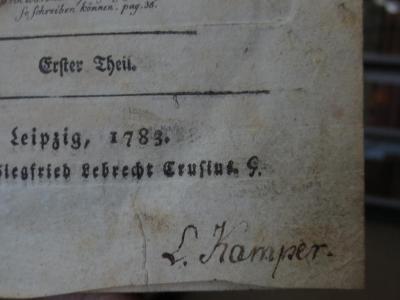 so schreiben können. pag. 36.
Erster Theil.
Leipzig, 1783.
Siegfried Lebrecht Crusius.
L. Kamper.